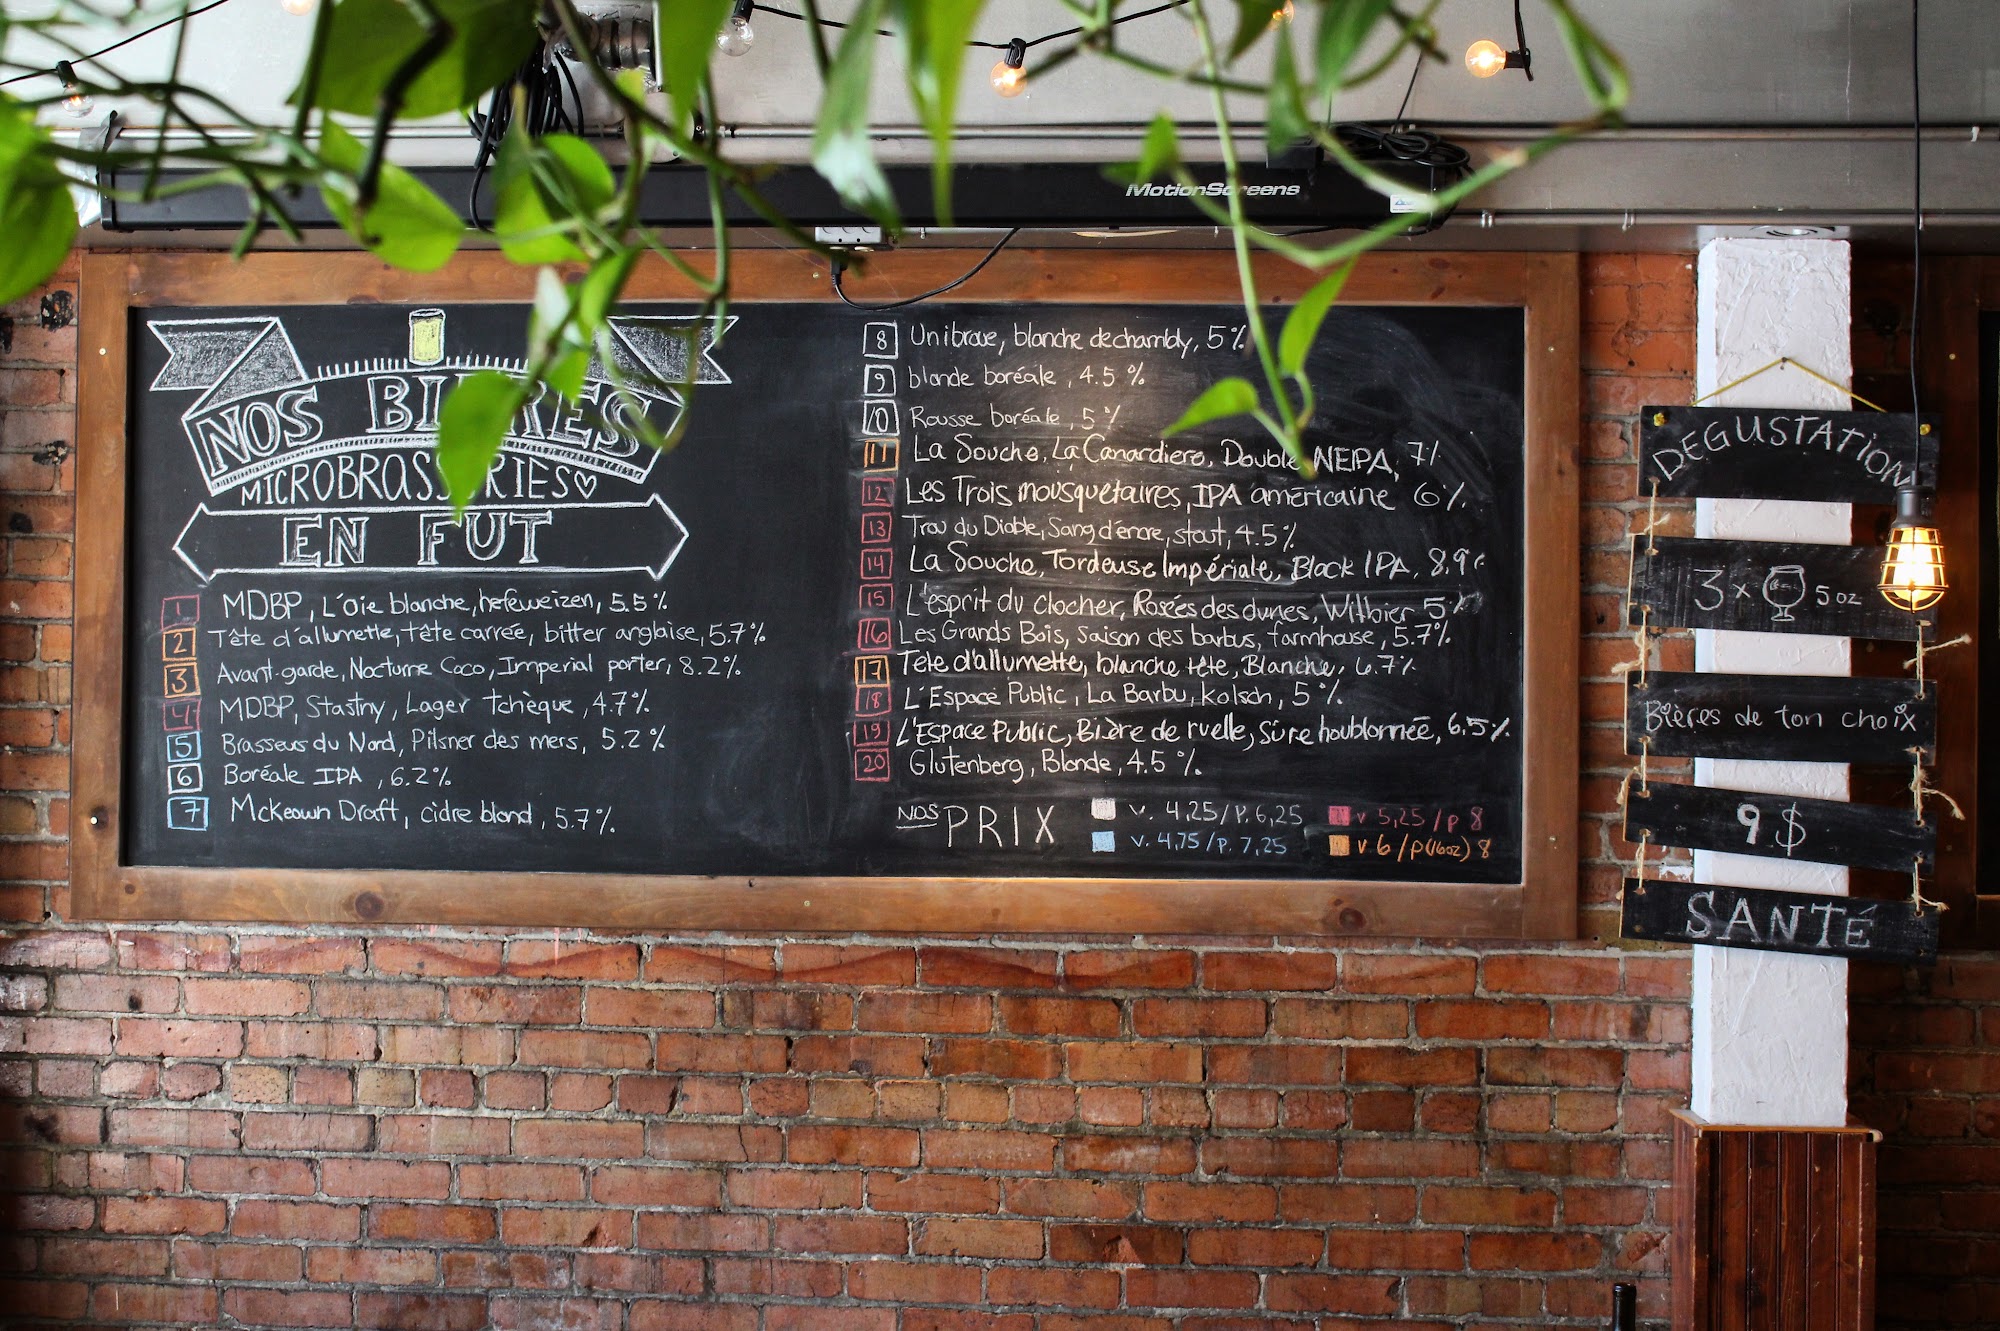 MotionScreens
NOS BIERES
MICROBRASSERIES
EN FUT
1 MDBP, L'oie blanche, hefeweizen, 5.5%
2 Tête d'allumette, tête carrée, bitter anglaise, 5.7%
3 Avant-garde, Nocturne Coco, Imperial porter, 8.2%
4 MDBP, Stastny, Lager tchèque, 4.7%
5 Brasseurs du Nord, Pilsner des mers, 5.2%
6 Boréale IPA, 6.2%
7 McKeown Draft, cidre blond, 5.7%
8 Unibroue, blanche de chambly, 5%
9 blonde boréale, 4.5%
10 Rousse boréale, 5%
11 La Souche, La Canardiere, Double NEIPA, 7%
12 Les Trois mousquetaires, IPA américaine 6%
13 Trou du Diable, Sang d'encre, stout, 4.5%
14 La Souche, Tordeuse Impériale, Black IPA, 8.9%
15 L'esprit du clocher, Rosées des dunes, Witbier 5%
16 Les Grands Bois, saison des barbus, farmhouse, 5.7%
17 Tête d'allumette, blanche tête, Blanche, 6.7%
18 L'Espace Public, La Barbu, Kolsch, 5%
19 L'Espace Public, Bière de ruelle, Sûre houblonnée, 6.5%
20 Glutenberg, Blonde, 4.5%
NOS PRIX
v. 4,25/P. 6,25
v 5,25/p 8
v. 4,75/P. 7,25
v 6/p(16oz) 8
DEGUSTATION
3 x 5 oz
Bières de ton choix
9 $
SANTÉ